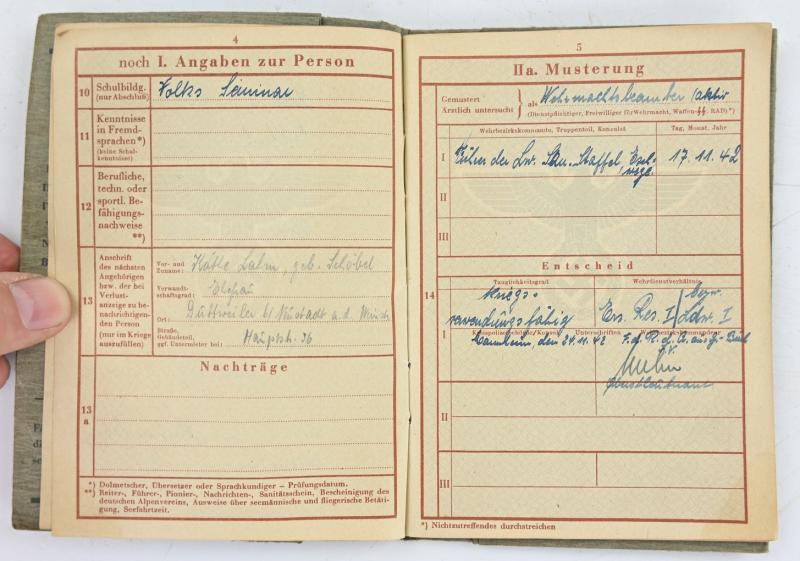 4
noch I. Angaben zur Person
10 Schulbildg. (nur Abschluß) Volks Seminar
11 Kenntnisse in Fremdsprachen*) (keine Schulkenntnisse)
12 Berufliche, techn. oder sportl. Befähigungsnachweise **)
13 Anschrift des nächsten Angehörigen bzw. der bei Verlustanzeige zu benachrichtigenden Person (nur im Kriege auszufüllen)
Vor- and Zuname: Käthe Lahm, geb. Schöbel
Verwandtschaftsgrad: Ehefrau
Ort: Duttweiler b/ Neustadt a. d. Weinstr.
Straße, Gebäudeteil, ggf. Untermieter bei: Hauptstr. 36
Nachträge
13 a
*) Dolmetscher, Übersetzer oder Sprachkundiger – Prüfungsdatum.
**) Reiter-, Führer-, Pionier-, Nachrichten-, Sanitätsschein, Bescheinigung des
deutschen Alpenvereins, Ausweise über seemännische und fliegerische Betäti-
gung, Seefahrtzeit.
5
IIa. Musterung
Gemustert
Ärztlich untersucht } als Wehrmachtsbeamter (aktiv
(Dienstpflichtiger, Freiwilliger f. Wehrmacht, Waffen-SS, RAD) *)
Wehrbezirkskommando, Truppenteil, Konsulat Tag, Monat, Jahr
I der Lw. San. Staffel Eschwege 17. 11. 42
II
III
Entscheid
14
Tauglichkeitsgrad Wehrdienstverhältnis
kriegsverwendungsfähig Ers. Res. I bzw. Ldw. I
Unterschriften
I Mannheim, den 24. 11. 42
Oberstleutnant
II
III
*) Nichtzutreffendes durchstreichen